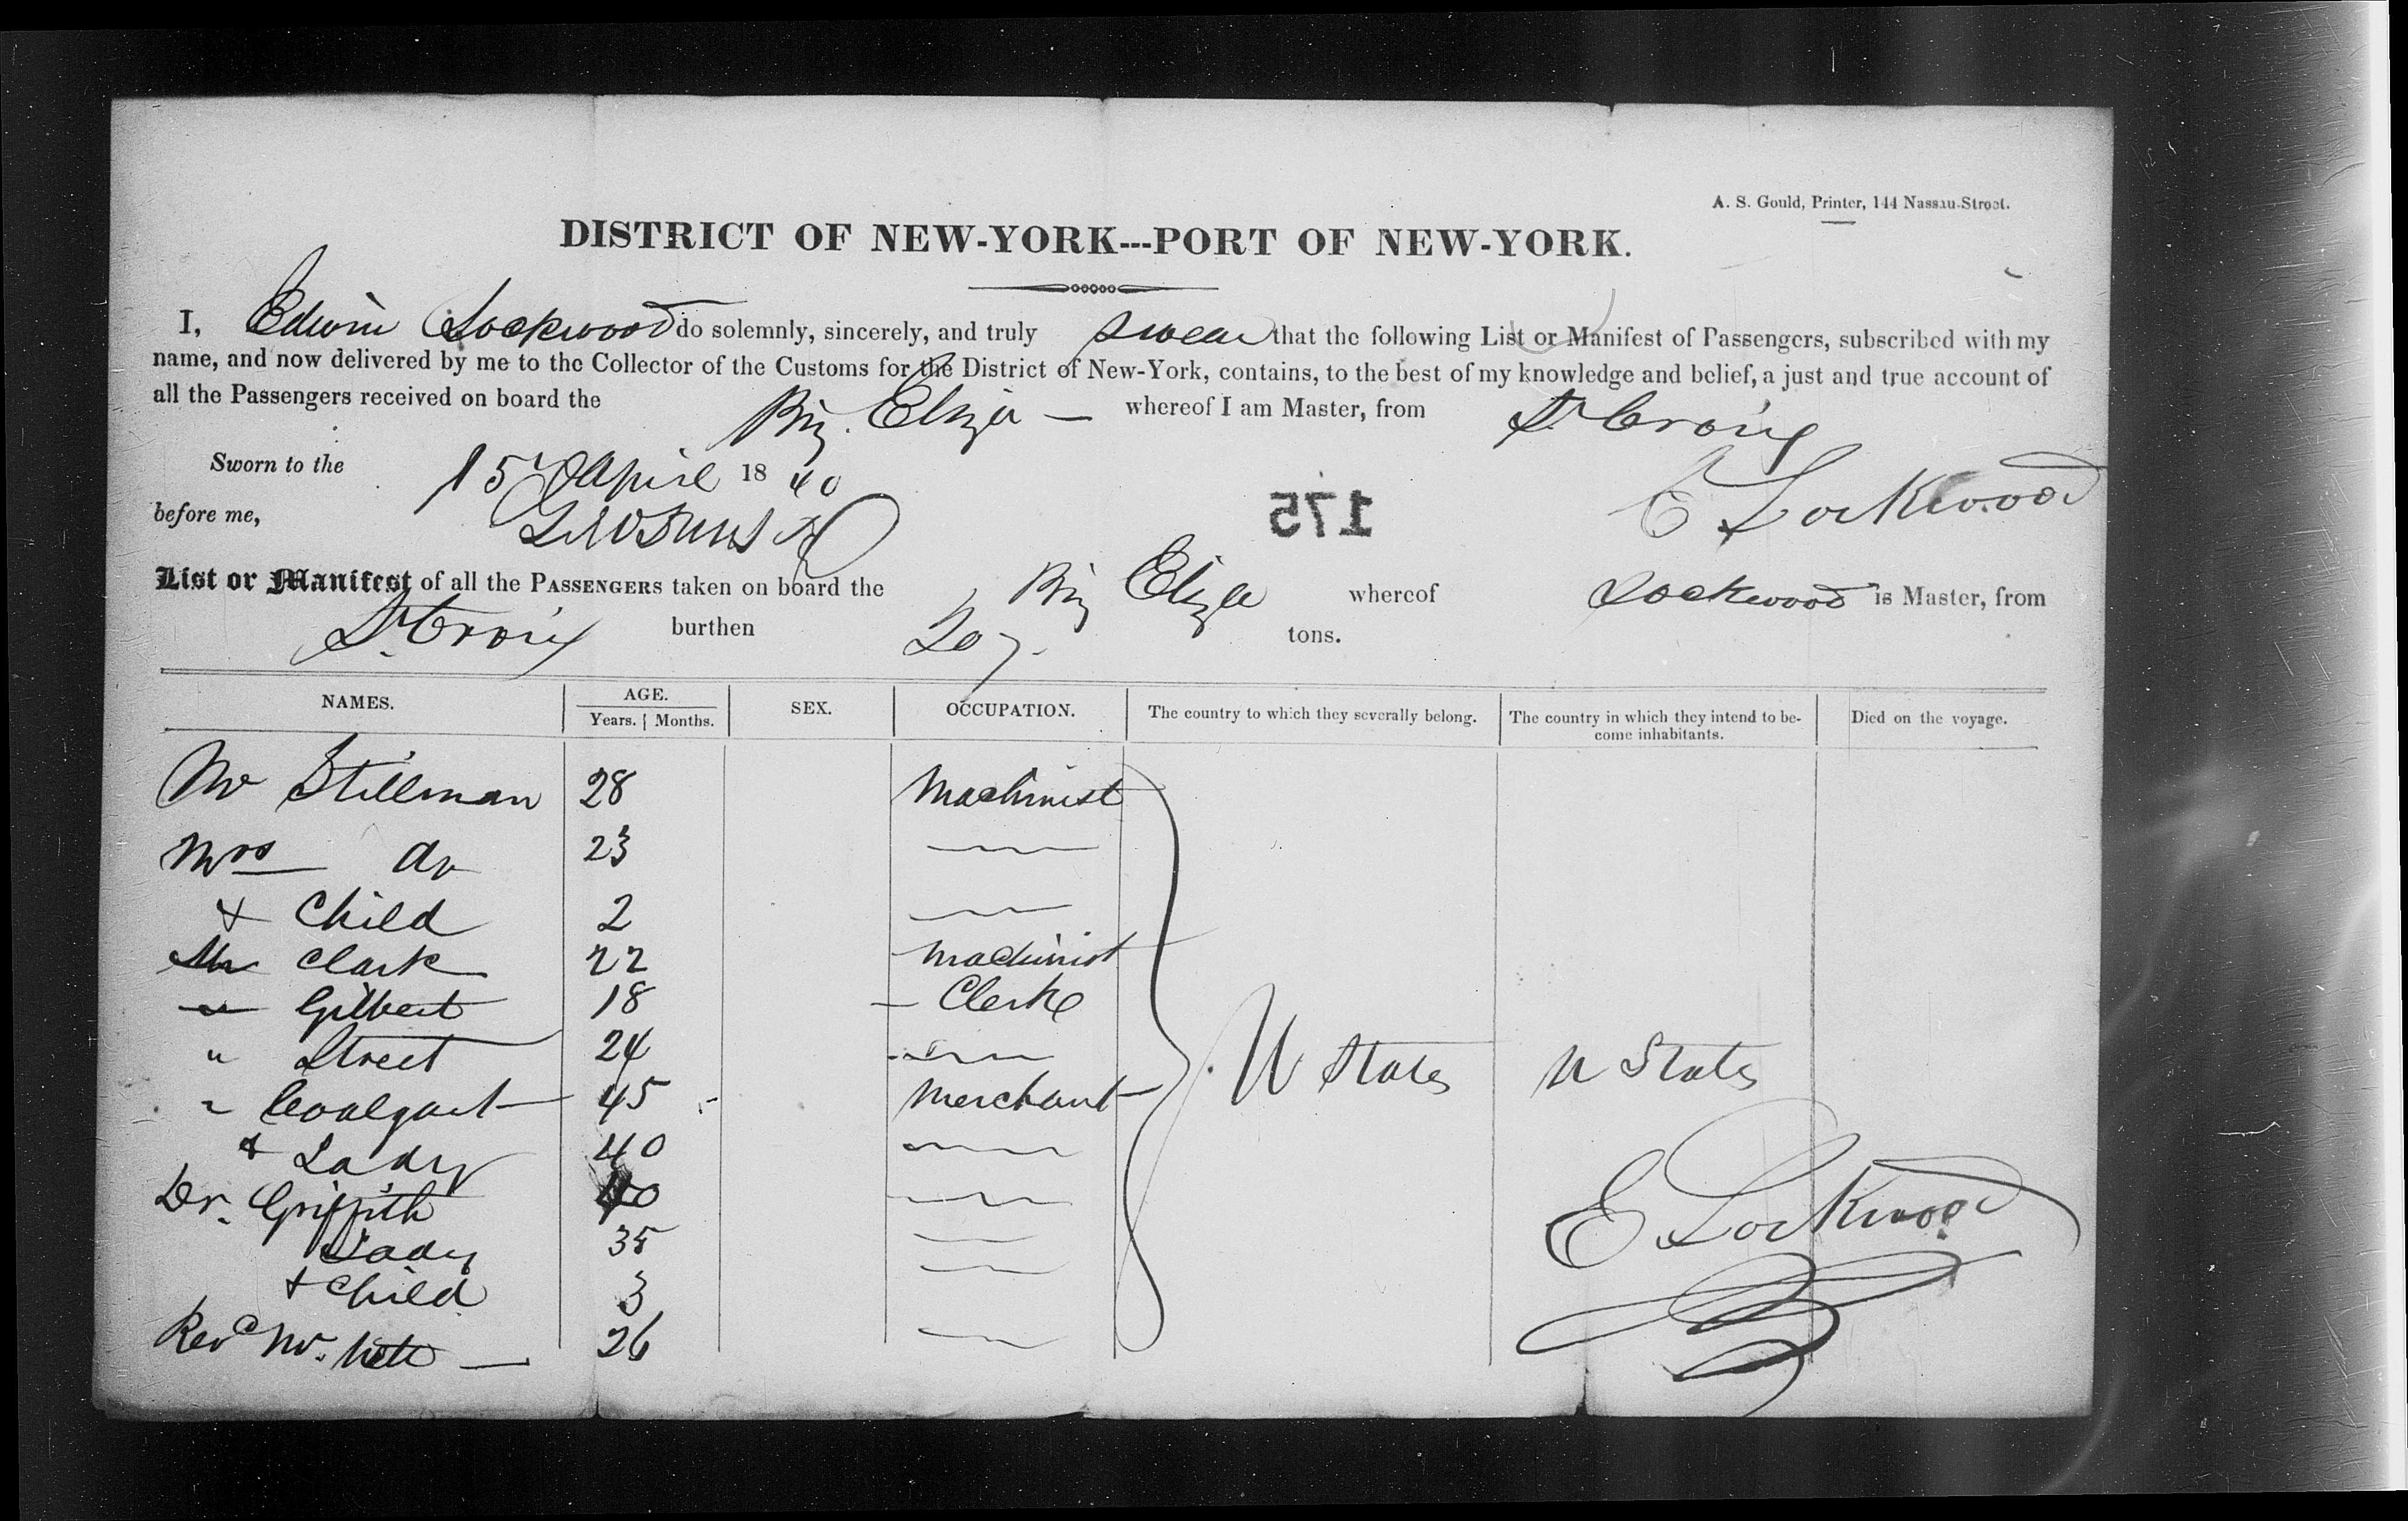 A. S. Gould, Printer, 144 Nassau-Street.
DISTRICT OF NEW-YORK---PORT OF NEW-YORK.
I, Edwin Lockwood do solemnly, sincerely, and truly swear that the following List or Manifest of Passengers, subscribed with my
name, and now delivered by me to the Collector of the Customs for the District of New-York, contains, to the best of my knowledge and belief, a just and true account of
all the Passengers received on board the Brig Eliza — whereof I am Master, from St Croix
Sworn to the 15 April 1840
before me,
E Lockwood
175
List or Manifest of all the PASSENGERS taken on board the Brig Eliza whereof Lockwood is Master, from
St Croix burthen 207 tons.
NAMES. AGE. Years. Months. SEX. OCCUPATION. The country to which they severally belong. The country in which they intend to become inhabitants. Died on the voyage.
Mr Stillman 28 Machinist
Mrs do 23
& Child 2
Mr Clark 22 Machinist
" Gilbert 18 Clerke
" Street 24
" 45 Merchant U States U States
& Lady 40
Dr. Griffith 40
Lady 35
& Child 3
Revd Mr. 26
E Lockwood